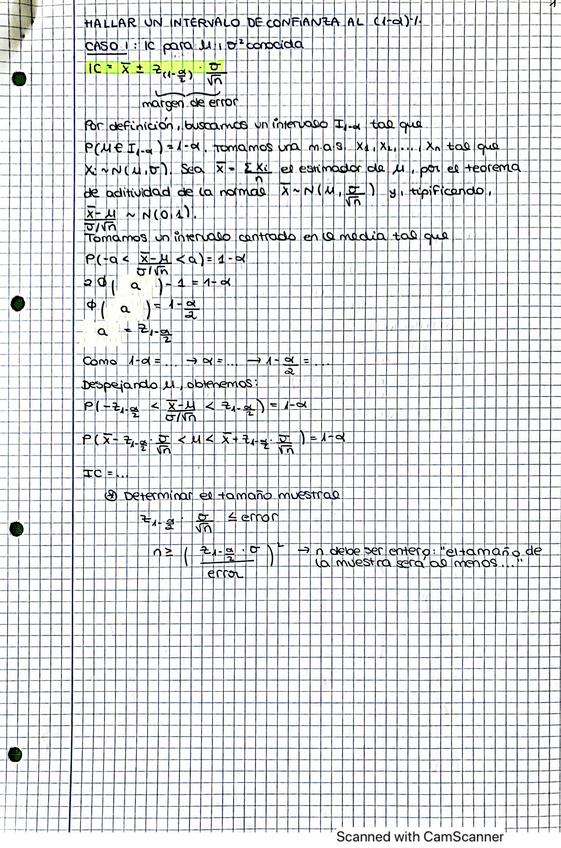 1
HALLAR UN INTERVALO DE CONFIANZA AL (1-α)·%.
CASO 1: IC para μ, σ² conocida
IC = x̄ ± z(1-α/2) · σ/√n
margen de error
Por definición, buscamos un intervalo I1-α tal que
P(μ ∈ I1-α) = 1-α. Tomamos una m.a.s. X1, X2, ..., Xn tal que
Xi ~ N(μ, σ). Sea x̄ = ΣXi/n el estimador de μ, por el teorema
de aditividad de la normal x̄ ~ N(μ, σ/√n) y, tipificando,
x̄-μ/σ/√n ~ N(0,1).
Tomamos un intervalo centrado en la media tal que
P(-a < x̄-μ/σ/√n < a) = 1-α
2Φ( a ) - 1 = 1-α
Φ( a ) = 1-α/2
a = z1-α/2
Como 1-α = ... → α = ... → 1-α/2 = ...
Despejando μ, obtenemos:
P(-z1-α/2 < x̄-μ/σ/√n < z1-α/2) = 1-α
P(x̄ - z1-α/2 · σ/√n < μ < x̄ + z1-α/2 · σ/√n) = 1-α
IC = ...
Determinar el tamaño muestral
z1-α/2 · σ/√n ≤ error
n ≥ (z1-α/2 · σ/error)² → n debe ser entero: "el tamaño de
la muestra será al menos ..."
Scanned with CamScanner